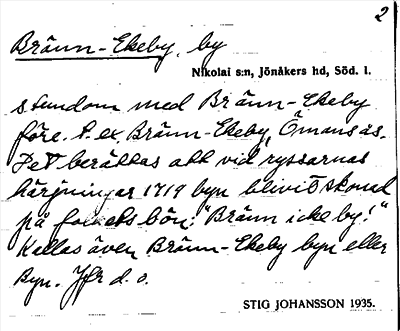 2
Bränn-Ekeby, by
Nikolai s:n, Jönåkers hd, Söd. l.
stundom med Bränn-Ekeby
före. t.ex. Bränn-Ekeby, Ömansäs.
Det berättas att vid ryssarnas
härjningar 1719 byn blivit skonad
på folkets bön: "Bränn icke by!"
Kallas även Bränn-Ekeby byn eller
Byn. Jfr d. o.
STIG JOHANSSON 1935.